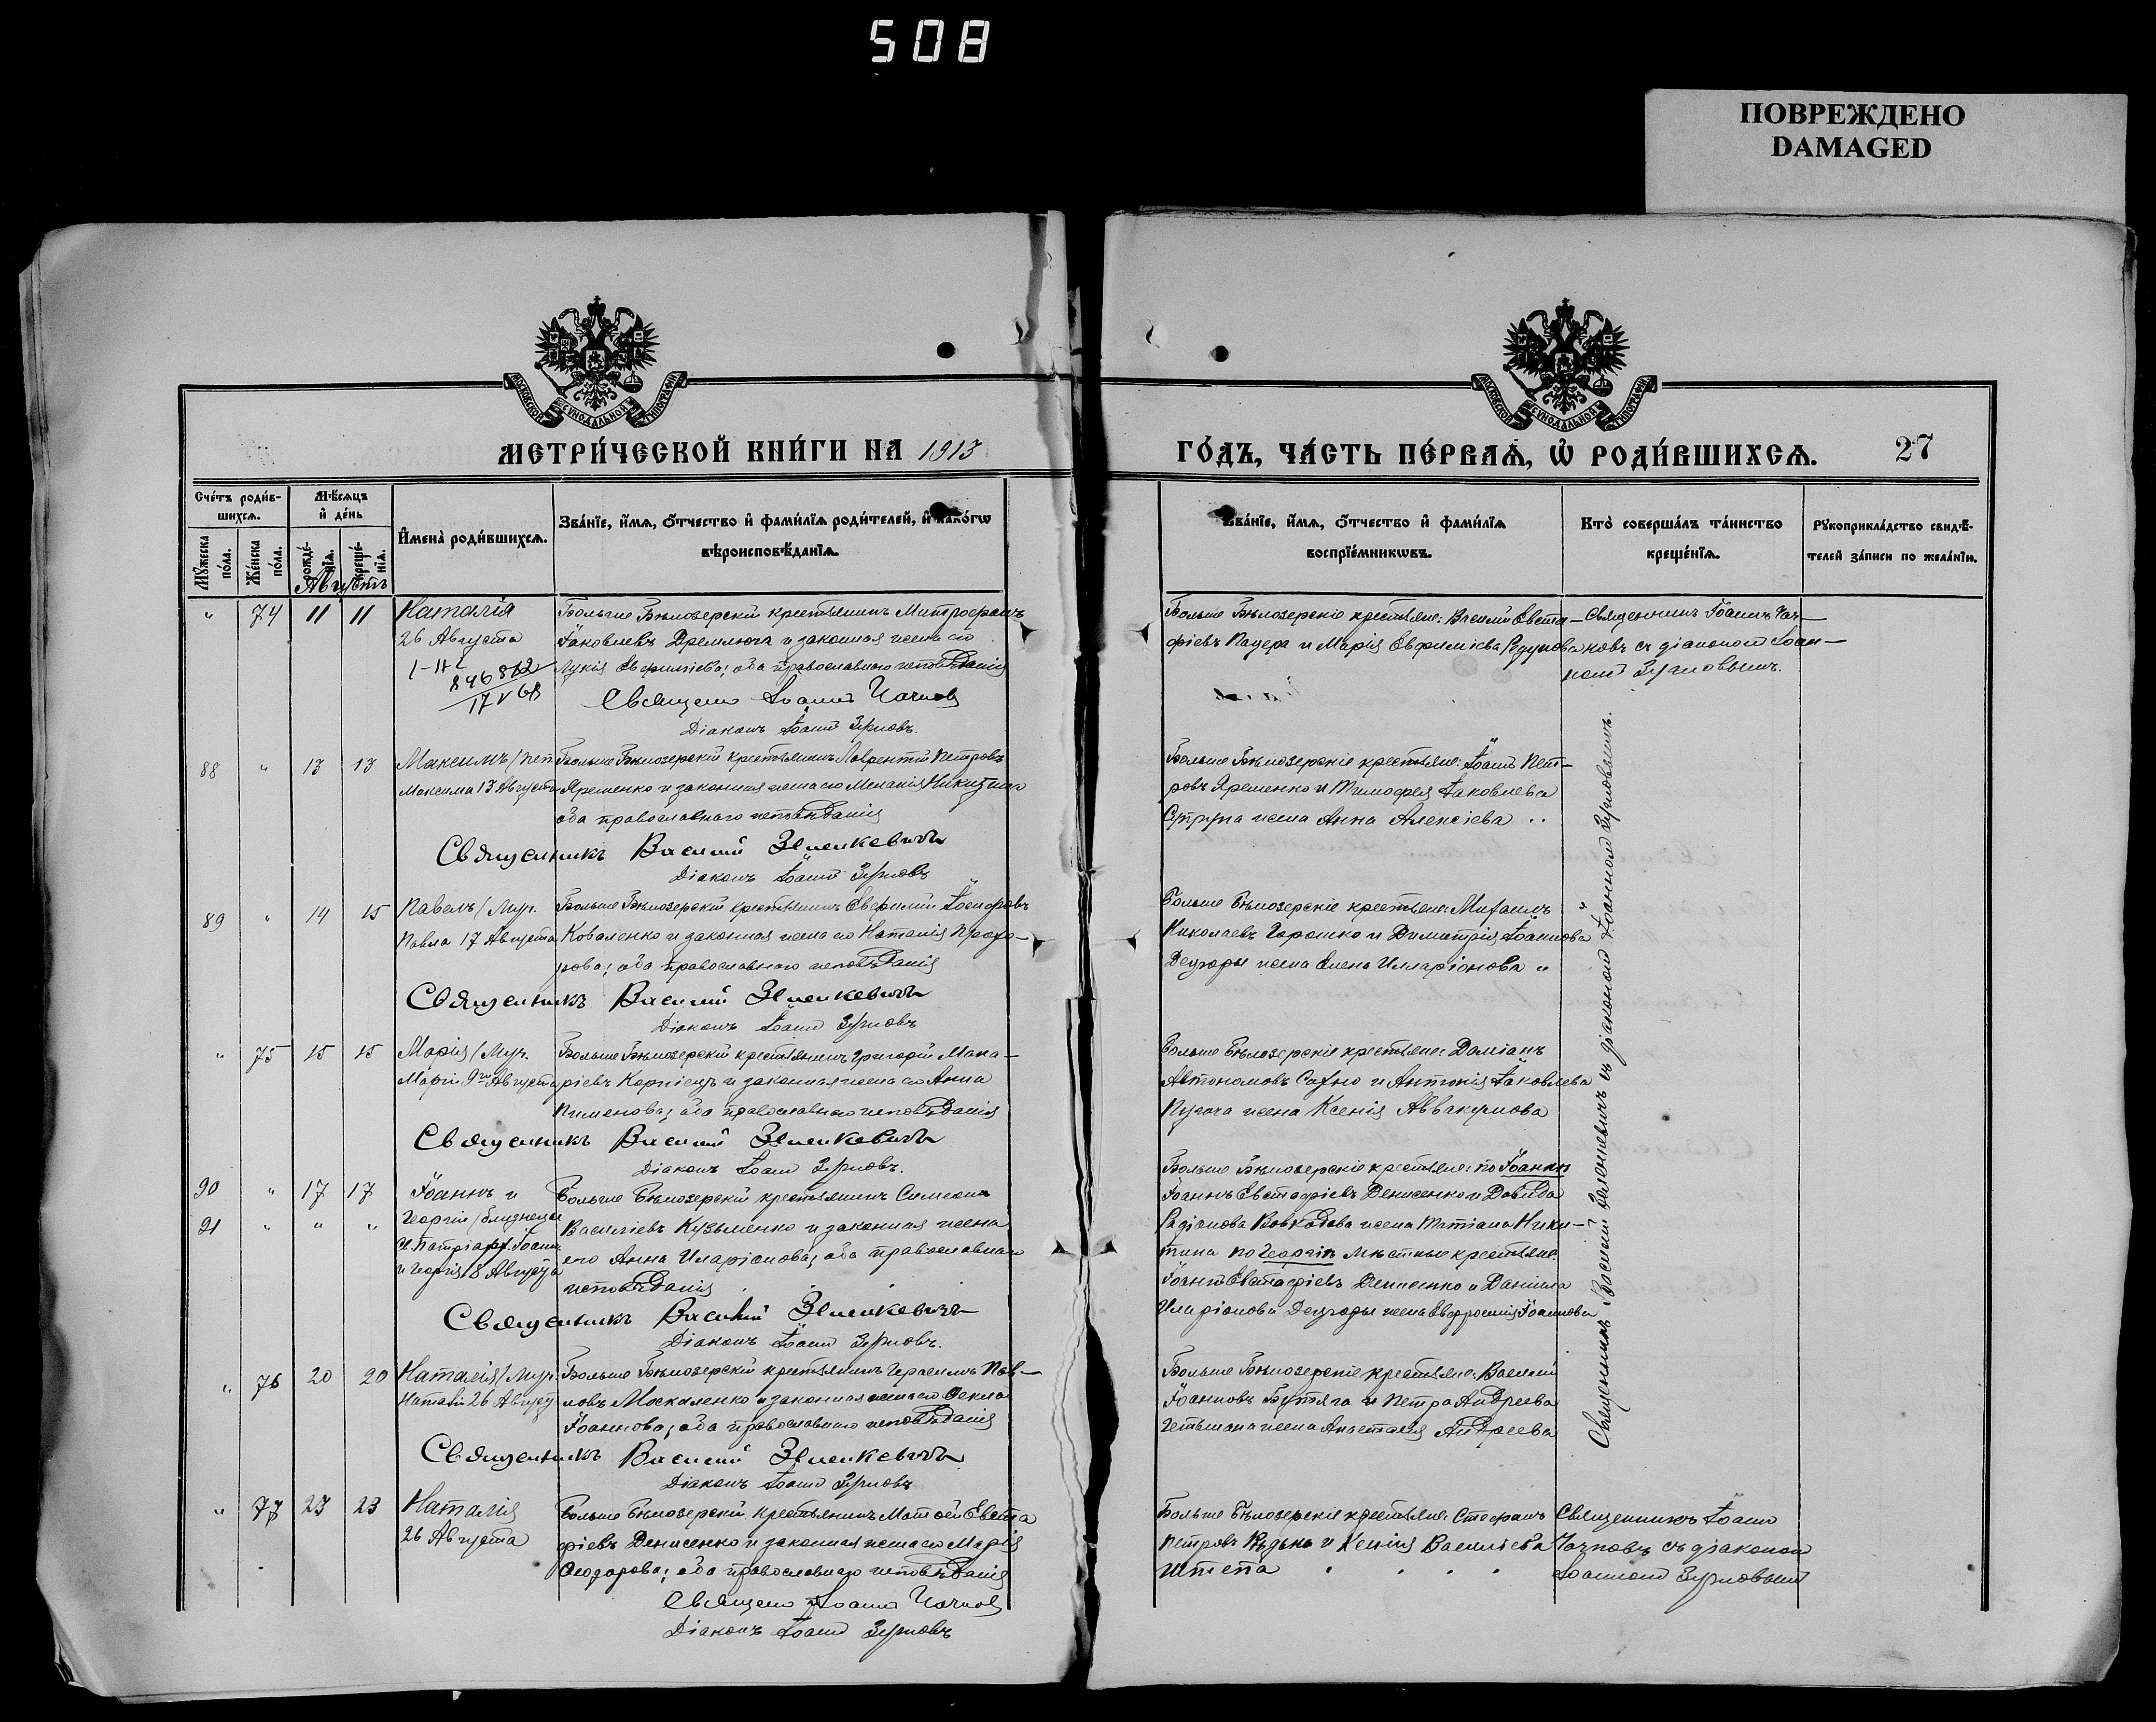 508
ПОВРЕЖДЕНО
DAMAGED
МОСКОВСКОЙ СѴНОДАЛЬНОЙ ТИПОГРАФІИ
МОСКОВСКОЙ СѴНОДАЛЬНОЙ ТИПОГРАФІИ
МЕТРИ́ЧЕСКОЙ КНИ́ГИ НА 1913
ГО́ДЪ, ЧА́СТЬ ПЕ́РВАѦ, Ѽ РОДИ́ВШИХСѦ.
27
Сче́тъ роди́в-
шихсѧ.
Мѣ́сѧцъ
и҆ де́нь
Мꙋ́жеска по́ла.
Же́нска по́ла.
рожде́-нїѧ.
креще́-нїѧ.
И҆мена̀ роди́вшихсѧ.
Зва́нїе, и҆́мѧ, ѻ҆́тчество и҆ фами́лїѧ роди́телей, и҆ како́гѡ
вѣроисповѣ́данїѧ.
Зва́нїе, и҆́мѧ, ѻ҆́тчество и҆ фами́лїѧ
воспрїе́мникѡвъ.
Кто̀ соверша́лъ та́инство
креще́нїѧ.
Рꙋкоприкла́дство свидѣ́-
телей за́писи по жела́нїю.
Августъ
" 74 11 11
Наталія
26 Августа
Больше Бѣлозерскій крестьянинъ Митрофанъ
Іаковлевъ Дремлюга и законная жена его
Лукія Евфиміева; оба православнаго исповѣданія
Священ. Іоаннъ Чачновъ
Діаконъ Іоаннъ Зерновъ.
Больше Бѣлозерскіе крестьяне: Василій Евста-
фіевъ Падера и Марія Евфиміева
Священникъ Іоаннъ Чач-
новъ съ діакономъ Іоан-
номъ Зерновымъ.
88 " 13 13
Максимъ
Максима 13 Августа
Больше Бѣлозерскій крестьянинъ Лаврентій Петровъ
Яременко и законная жена его Меланія Никитина
оба православнаго исповѣданія
Священникъ Василій Зѣленкевичъ
Діаконъ Іоаннъ Зерновъ
Больше Бѣлозерскіе крестьяне: Іоаннъ Пет-
ровъ Яременко и Тимофея Іаковлева
жена Анна Алексіева
89 " 14 15
Павелъ / Муч.
Павла 17 Августа
Больше Бѣлозерскій крестьянинъ Евфимій
Коваленко и законная жена его Наталія Прохо-
рова; оба православнаго исповѣданія
Священникъ Василій Зѣленкевичъ
Діаконъ Іоаннъ Зерновъ
Больше Бѣлозерскіе крестьяне: Михаилъ
Николаевъ Горошко и Димитрія Іоаннова
жена Елена Илларіонова "
" 75 15 15
Марія / Муч.
Маріи 9го Августа
Больше Бѣлозерскій крестьянинъ Григорій Мака-
ріевъ Корніецъ и законная жена его Анна
Пименова; оба православнаго исповѣданія
Священникъ Василій Зѣленкевичъ
Діаконъ Іоаннъ Зерновъ.
Больше Бѣлозерскіе крестьяне: Даміанъ
Автономовъ Сахно и Антонія Іаковлева
Пугача жена Ксенія Аввакумова
90 " 17 17
91 " " "
Іоаннъ и
Георгій / близнецы
Св. Патріарх. Іоанна
и Георгія 18 Августа
Больше Бѣлозерскій крестьянинъ Симеонъ
Василіевъ Кузьменко и законная жена
его Анна Иларіонова; оба православнаго
исповѣданія
Священникъ Василій Зѣленкевичъ
Діаконъ Іоаннъ Зерновъ.
Больше Бѣлозерскіе крестьяне: по Іоаннѣ
Іоаннъ Евстафіевъ Денисенко и Давида
Родіонова жена Татіана Ники-
тина по Георгіи мѣстные крестьяне
Іоаннъ Евстафіевъ Денисенко и Даніила
Иларіонова жена Евфросинія Іоаннова
" 76 20 20
Наталія / Муч.
Наталіи 26 Августа
Больше Бѣлозерскій крестьянинъ Герасимъ Пав-
ловъ Москаленко и законная жена его Ѳекла
Іоаннова; оба православнаго исповѣданія
Священникъ Василій Зѣленкевичъ
Діаконъ Іоаннъ Зерновъ
Больше Бѣлозерскіе крестьяне: Василій
Іоанновъ и Петра Андреева
Гетьмана жена Анастасія Андреева
Священникъ Василій Зѣленкевичъ съ діакономъ Іоанномъ Зерновымъ.
" 77 23 23
Наталія
26 Августа
Больше Бѣлозерскій крестьянинъ Матѳей Евста
фіевъ Денисенко и законная жена его Марія
Ѳеодорова; оба православнаго исповѣданія
Священ. Іоаннъ Чачновъ
Діаконъ Іоаннъ Зерновъ
Больше Бѣлозерскіе крестьяне: Стефанъ
Петровъ и Ксенія Василіева
Штепа
Священникъ Іоаннъ
Чачновъ съ діакономъ
Іоанномъ Зерновымъ